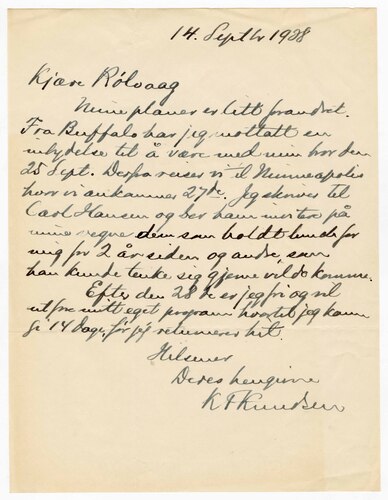 14. Septbr 1928
Kjære Rölvaag
Mine planer er litt forandret.
Fra Buffalo har jeg mottatt en
inbydelse til å være med min bror den
25 Sept. Derfra reiser vi til Minneapolis
hvor vi ankommer 27de. Jeg skriver til
Carl Hansen og ber ham invitere på
mine vegne dem som holdt lunch for
mig for 2 år siden og andre, som
han kunde tenke sig gjerne vilde komme.
Efter den 28de er jeg fri og vil
utføre mitt eget program hvortil jeg kan
gi 14 dage, før jeg returnerer hit.
Hilsener
Deres hengivne
K F Knudsen